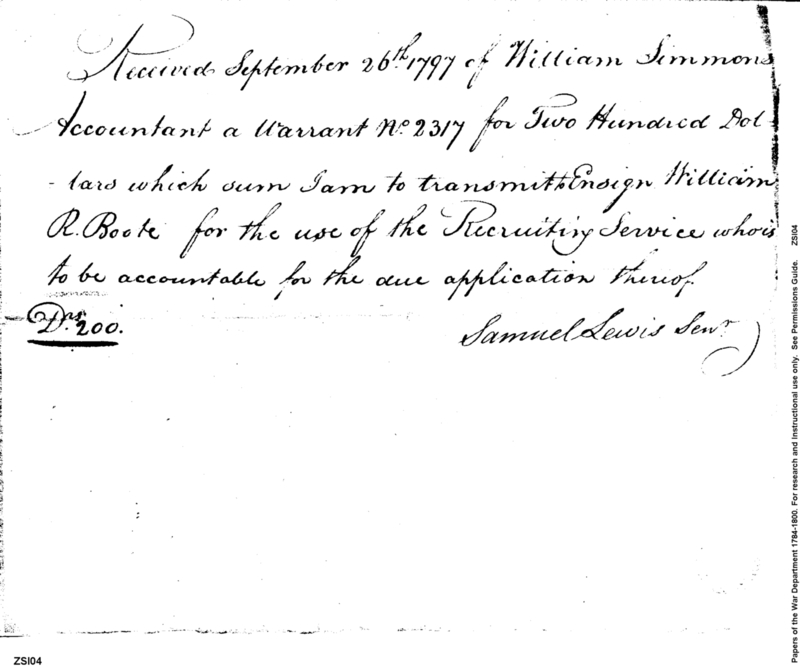 Received September 26th 1797 of William Simmons
Accountant a Warrant No. 2317 for Two Hundred Dol-
-lars which sum I am to transmit to Ensign William
R. Boote for the use of the Recruiting Service who is
to be accountable for the due application thereof.
Drs. 200.
Samuel Lewis Senr.
Papers of the War Department 1784-1800. For research and instructional use only. See Permissions Guide. ZSI04
ZSI04